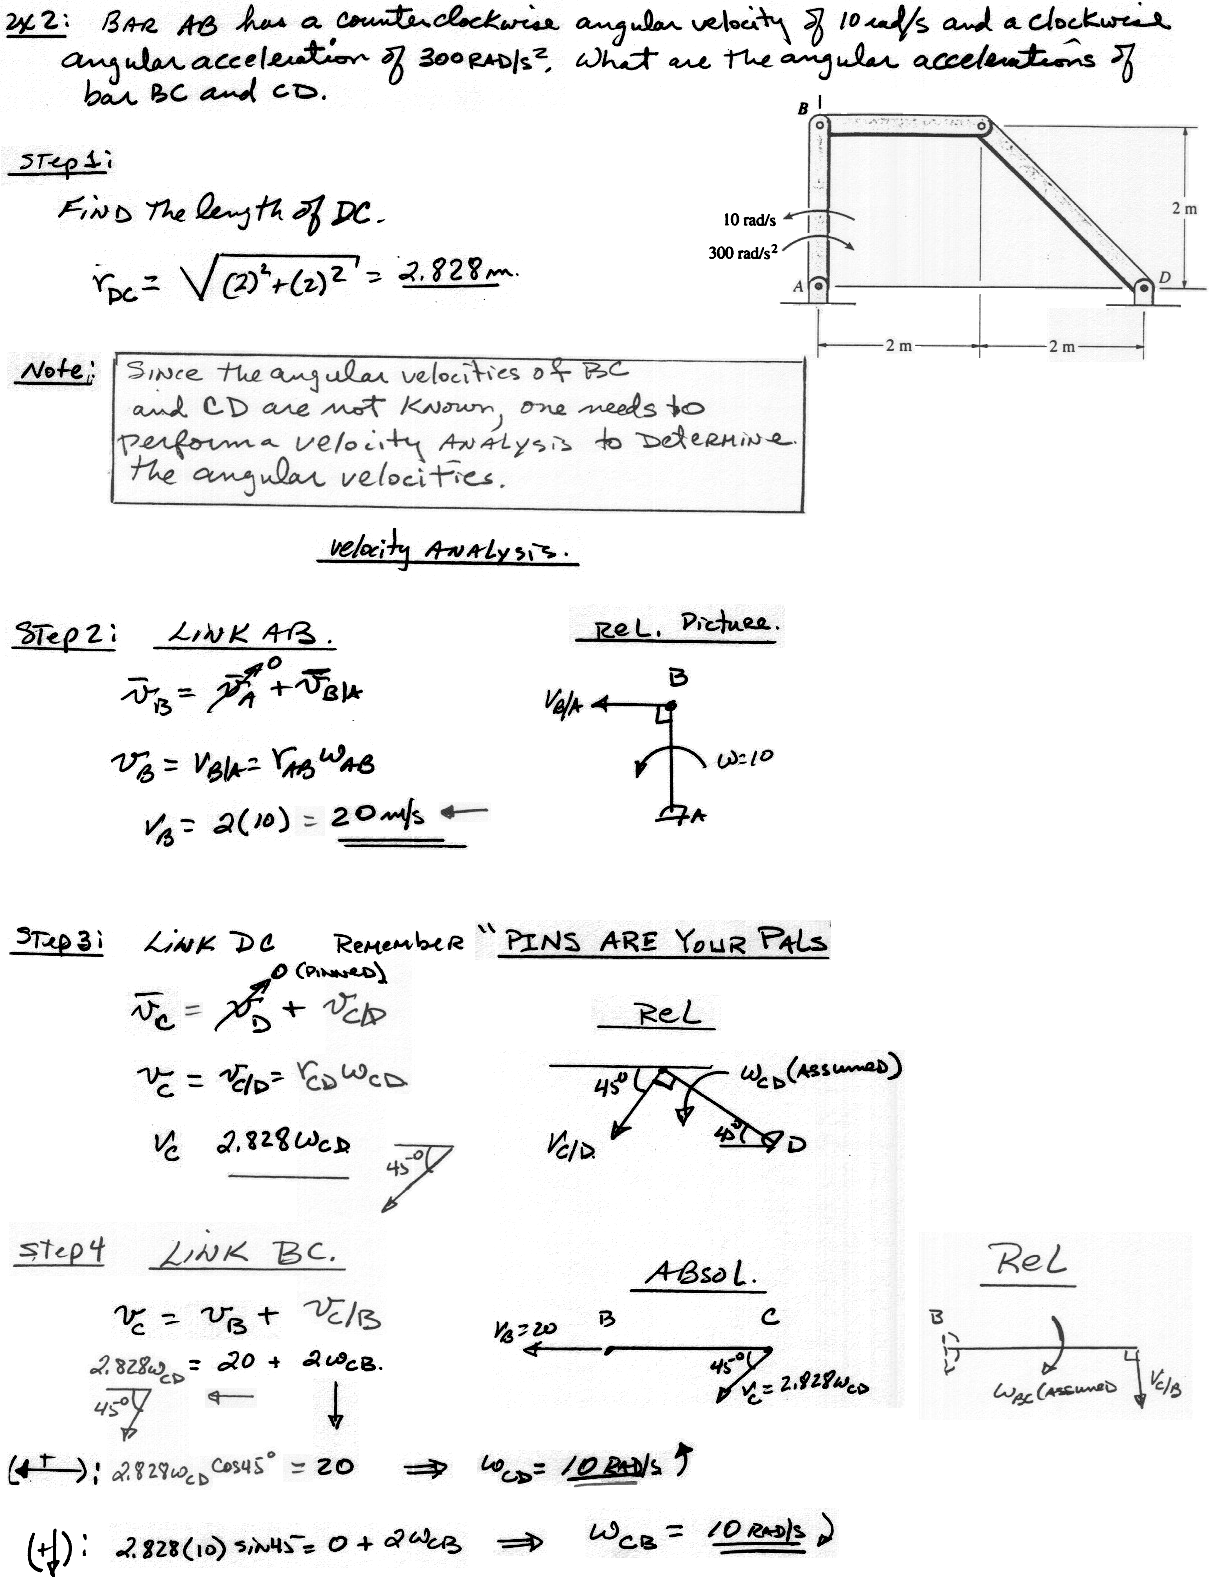 2x2: BAR AB has a counterclockwise angular velocity of 10 rad/s and a clockwise
angular acceleration of 300 RAD/s². What are the angular accelerations of
bar BC and CD.
Step 1:
FIND The length of DC.
r_DC = √((2)²+(2)²) = 2.828 m.
B
10 rad/s
300 rad/s²
A
D
2 m
2 m
2 m
Note:
Since the angular velocities of BC
and CD are not known, one needs to
perform a velocity ANALYSIS to DETERMINE
the angular velocities.
velocity ANALYSIS.
Step 2: LINK AB.
Rel. Picture.
v̄_B = v̄_A + v̄_B/A
0
v_B = v_B/A = r_AB ω_AB
v_B = 2(10) = 20 m/s ←
B
V_B/A
ω=10
A
Step 3: LINK DC Remember "PINS ARE YOUR PALS
0 (PINNED)
v̄_C = v_D + v_C/D
v_C = v_C/D = r_CD ω_CD
v_C 2.828 ω_CD
45°
Rel
45°
ω_CD (ASSUMED)
V_C/D
45°
D
Step 4 LINK BC.
v_C = v_B + v_C/B
2.828ω_CD = 20 + 2ω_CB.
45° ← ↓
ABSOL.
V_B=20
B
C
45°
V_C = 2.828ω_CD
Rel
B
ω_BC (Assumed
V_C/B
(←+): 2.828ω_CD cos45° = 20 ⇒ ω_CD = 10 RAD/s
(+↓): 2.828(10) sin45 = 0 + 2ω_CB ⇒ ω_CB = 10 RAD/s